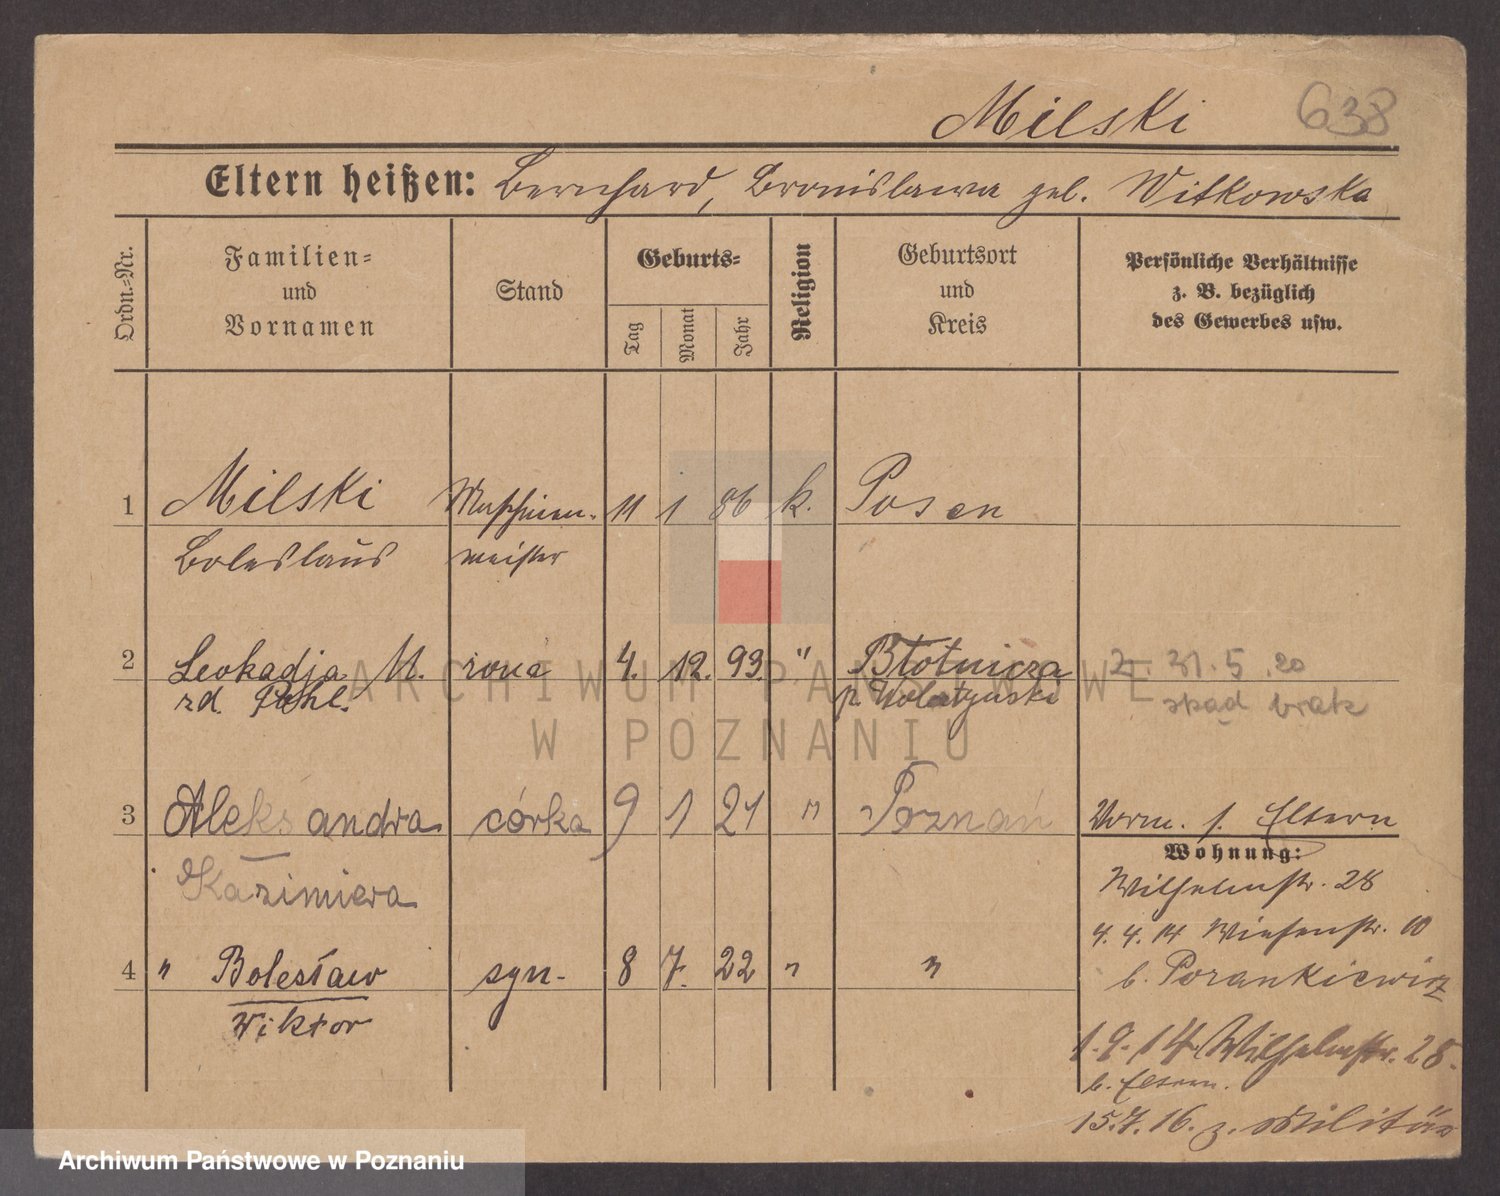 Milski 638
Eltern heißen: Bernhard, Bronislawa geb. Witkowska
Ordn.-Nr.
Familien-
und
Vornamen
Stand
Geburts-
Tag
Monat
Jahr
Religion
Geburtsort
und
Kreis
Persönliche Verhältnisse
z. B. bezüglich
des Gewerbes usw.
1 Milski Maschinen- 11 1 86 k. Posen
Boleslaus meister
2 Leokadja M. żona 4. 12. 93. " Błotnica
zd. Pohl. p. Wolsztyński
Z. 31.5.20
skąd brak
3 Aleksandra córka 9 1 21 " Poznań
Kazimiera
Vorm. s. Eltern
Wohnung:
Wilhelmstr. 28
4.4.14 Wiesenstr. 10
4 " Bolesław syn. 8 7. 22 " "
Wiktor
b. Porankiewicz
1.9.14 Wilhelmstr. 28.
b. Eltern.
15.7.16. z. Militär
ARCHIWUM PAŃSTWOWE
W POZNANIU
Archiwum Państwowe w Poznaniu